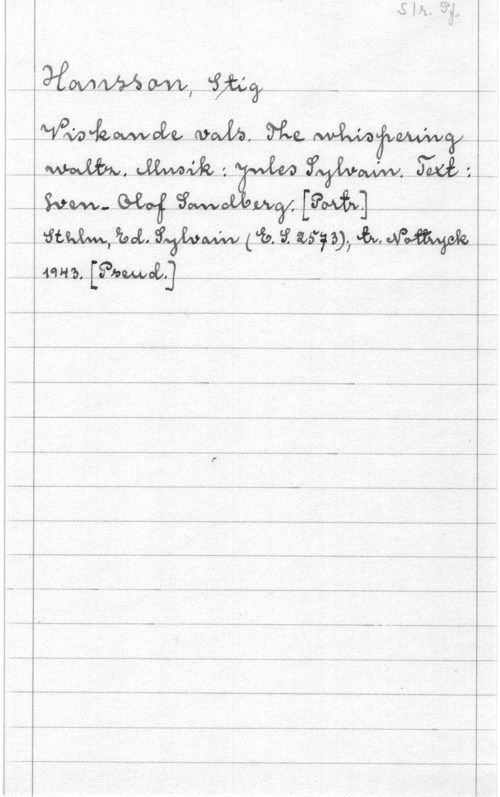 Slr. Pf.
Hansson, Stig
Viskande vals. The whispering
waltz. Musik : Jules Sylvain. Text :
Sven-Olof Sandberg. [Portr.]
Sthlm, Ed. Sylvain (E. S. 2573), tr. Nottryck
1943. [Pseud.]